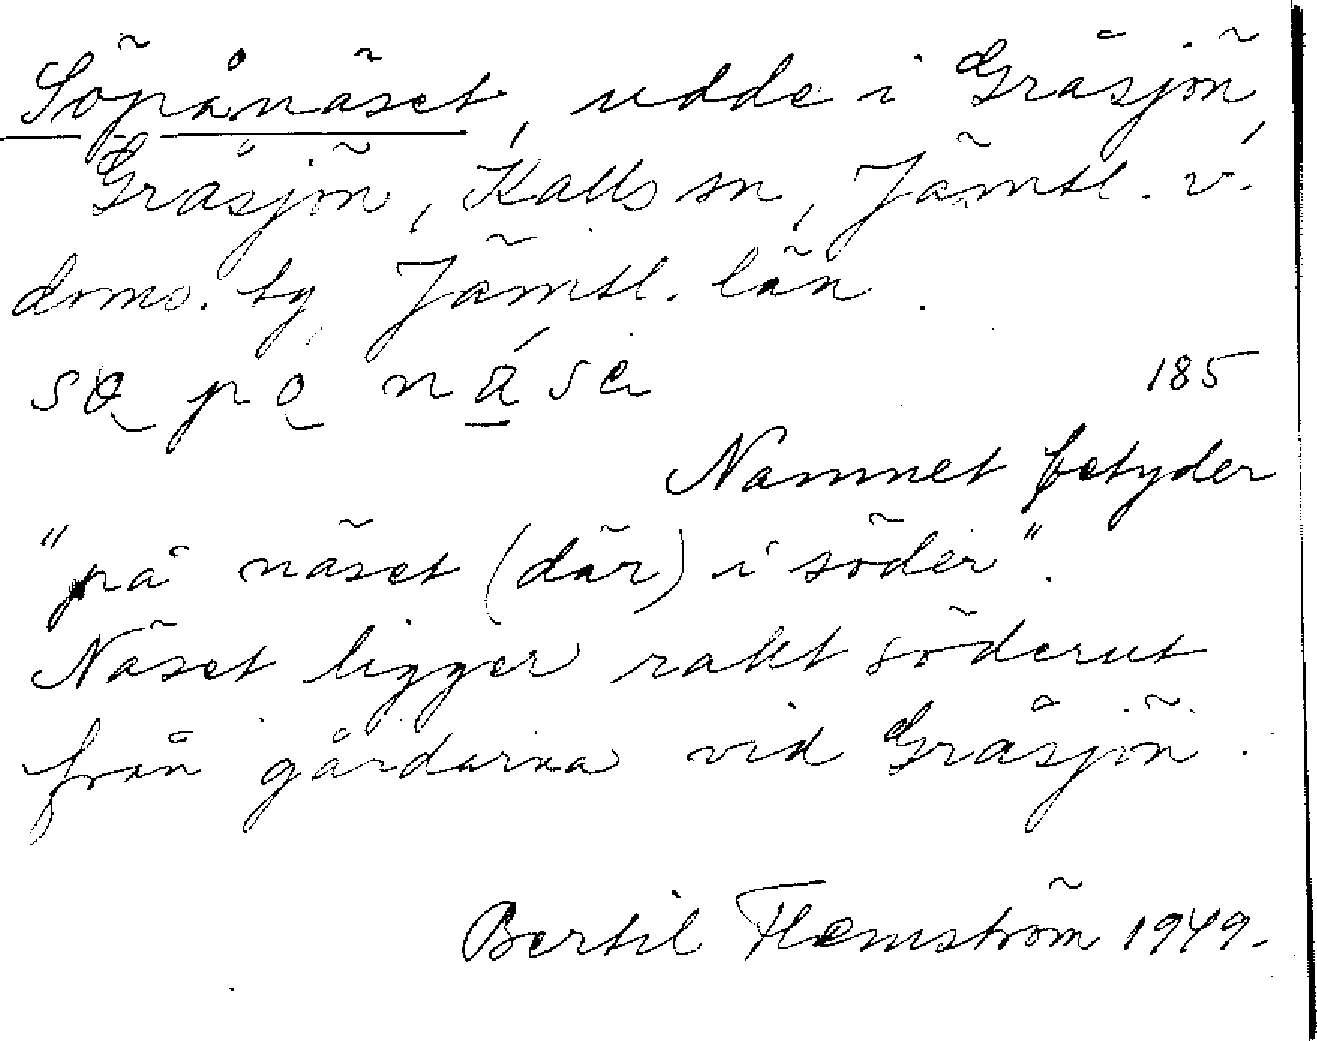 Söpånäset, udde i Gråsjön,
Gråsjön, Kalls sn, Jämtl. v.
doms. tg, Jämtl. län.
185
Namnet betyder
"på näset (där) i söder".
Näset ligger rakt söderut
från gårdarna vid Gråsjön.
Bertil Flemström 1949.